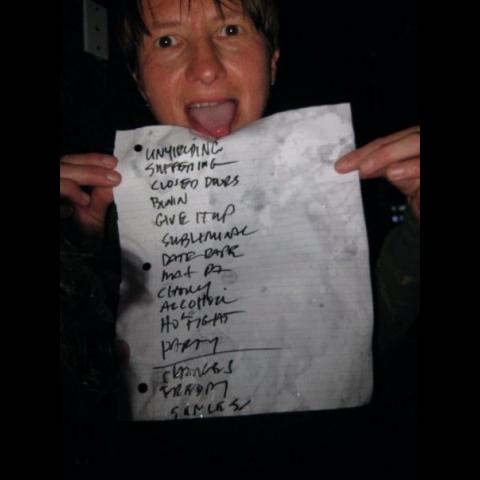 UNYIELDING
SUFFERING
CLOSED DOORS
BURN
GIVE IT UP
SUBLIMINAL
DATE RAPE
MAX PA
ALCOHOL
HO FIGHT
PARTY
CHANGES